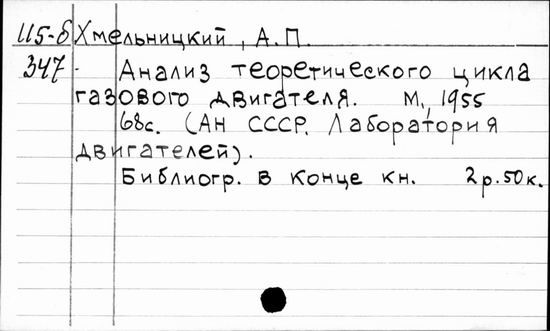 115-б Хмельницкий, А.П.
347 Анализ теоретического цикла
газового двигателя. М., 1955
68с. (АН СССР. Лаборатория
двигателей).
Библиогр. в конце кн. 2р.50к.